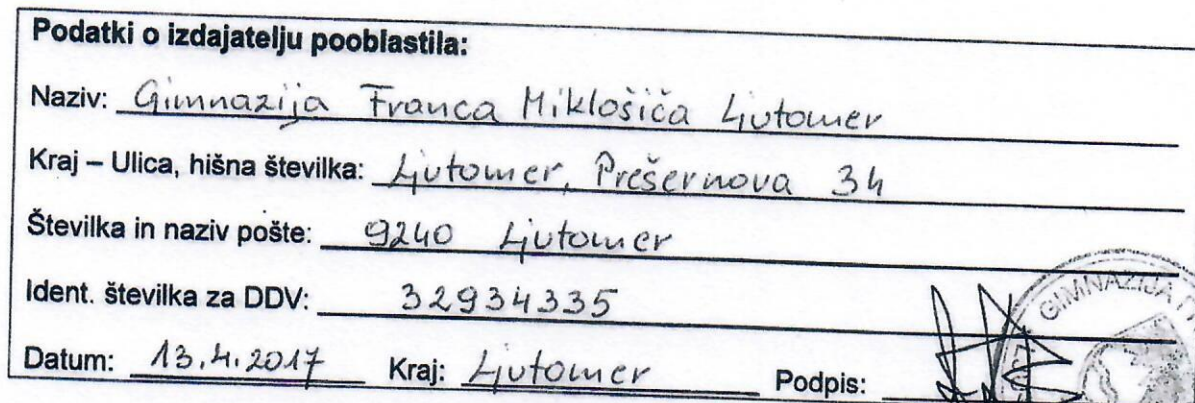 Podatki o izdajatelju pooblastila:
Naziv: Gimnazija Franca Miklošiča Ljutomer
Kraj – Ulica, hišna številka: Ljutomer, Prešernova 34
Številka in naziv pošte: 9240 Ljutomer
Ident. številka za DDV: 32934335
GIMNAZIJA
Datum: 13.4.2017 Kraj: Ljutomer Podpis: